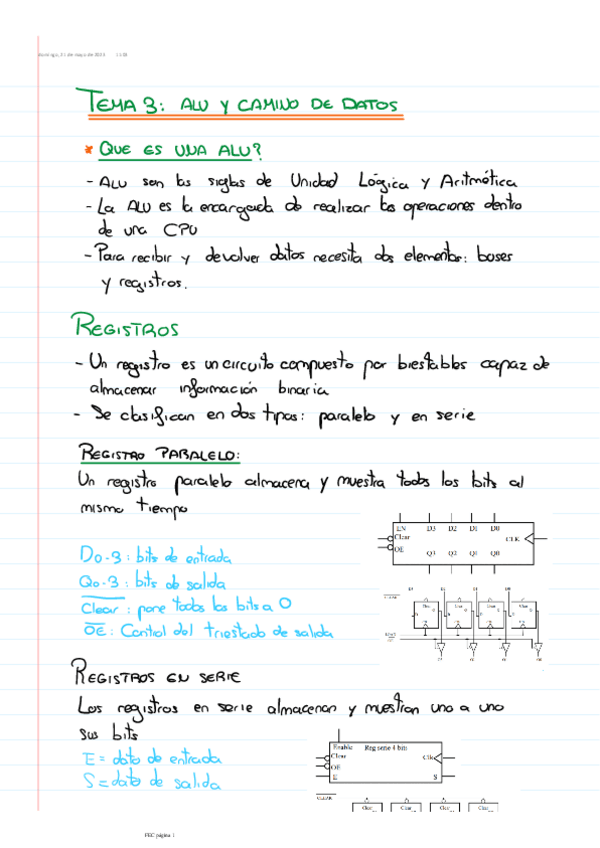 TEMA 3: ALU Y CAMINO DE DATOS
* QUE ES UNA ALU?
- ALU son las siglas de Unidad Lógica y Aritmética
- La ALU es la encargada de realizar las operaciones dentro
de una CPU
- Para recibir y devolver datos necesita dos elementos: buses
y registros.
REGISTROS
- Un registro es un circuito compuesto por biestables capaz de
almacenar información binaria
- Se clasifican en dos tipos: paralelo y en serie
REGISTRO PARALELO:
Un registro paralelo almacena y muestra todos los bits al
mismo tiempo
EN D3 D2 D1 D0
Clear
CLK
OE
Q3 Q2 Q1 Q0
D0-3: bits de entrada
Q0-3: bits de salida
Clear: pone todos los bits a 0
OE: Control del triestado de salida
REGISTROS EN SERIE
Los registros en serie almacenan y muestran uno a uno
sus bits
E = dato de entrada
S = dato de salida
Enable Reg serie 4 bits
Clear Clk
OE
E S
CLEAR
Clear Clear Clear Clear
FEC página 1